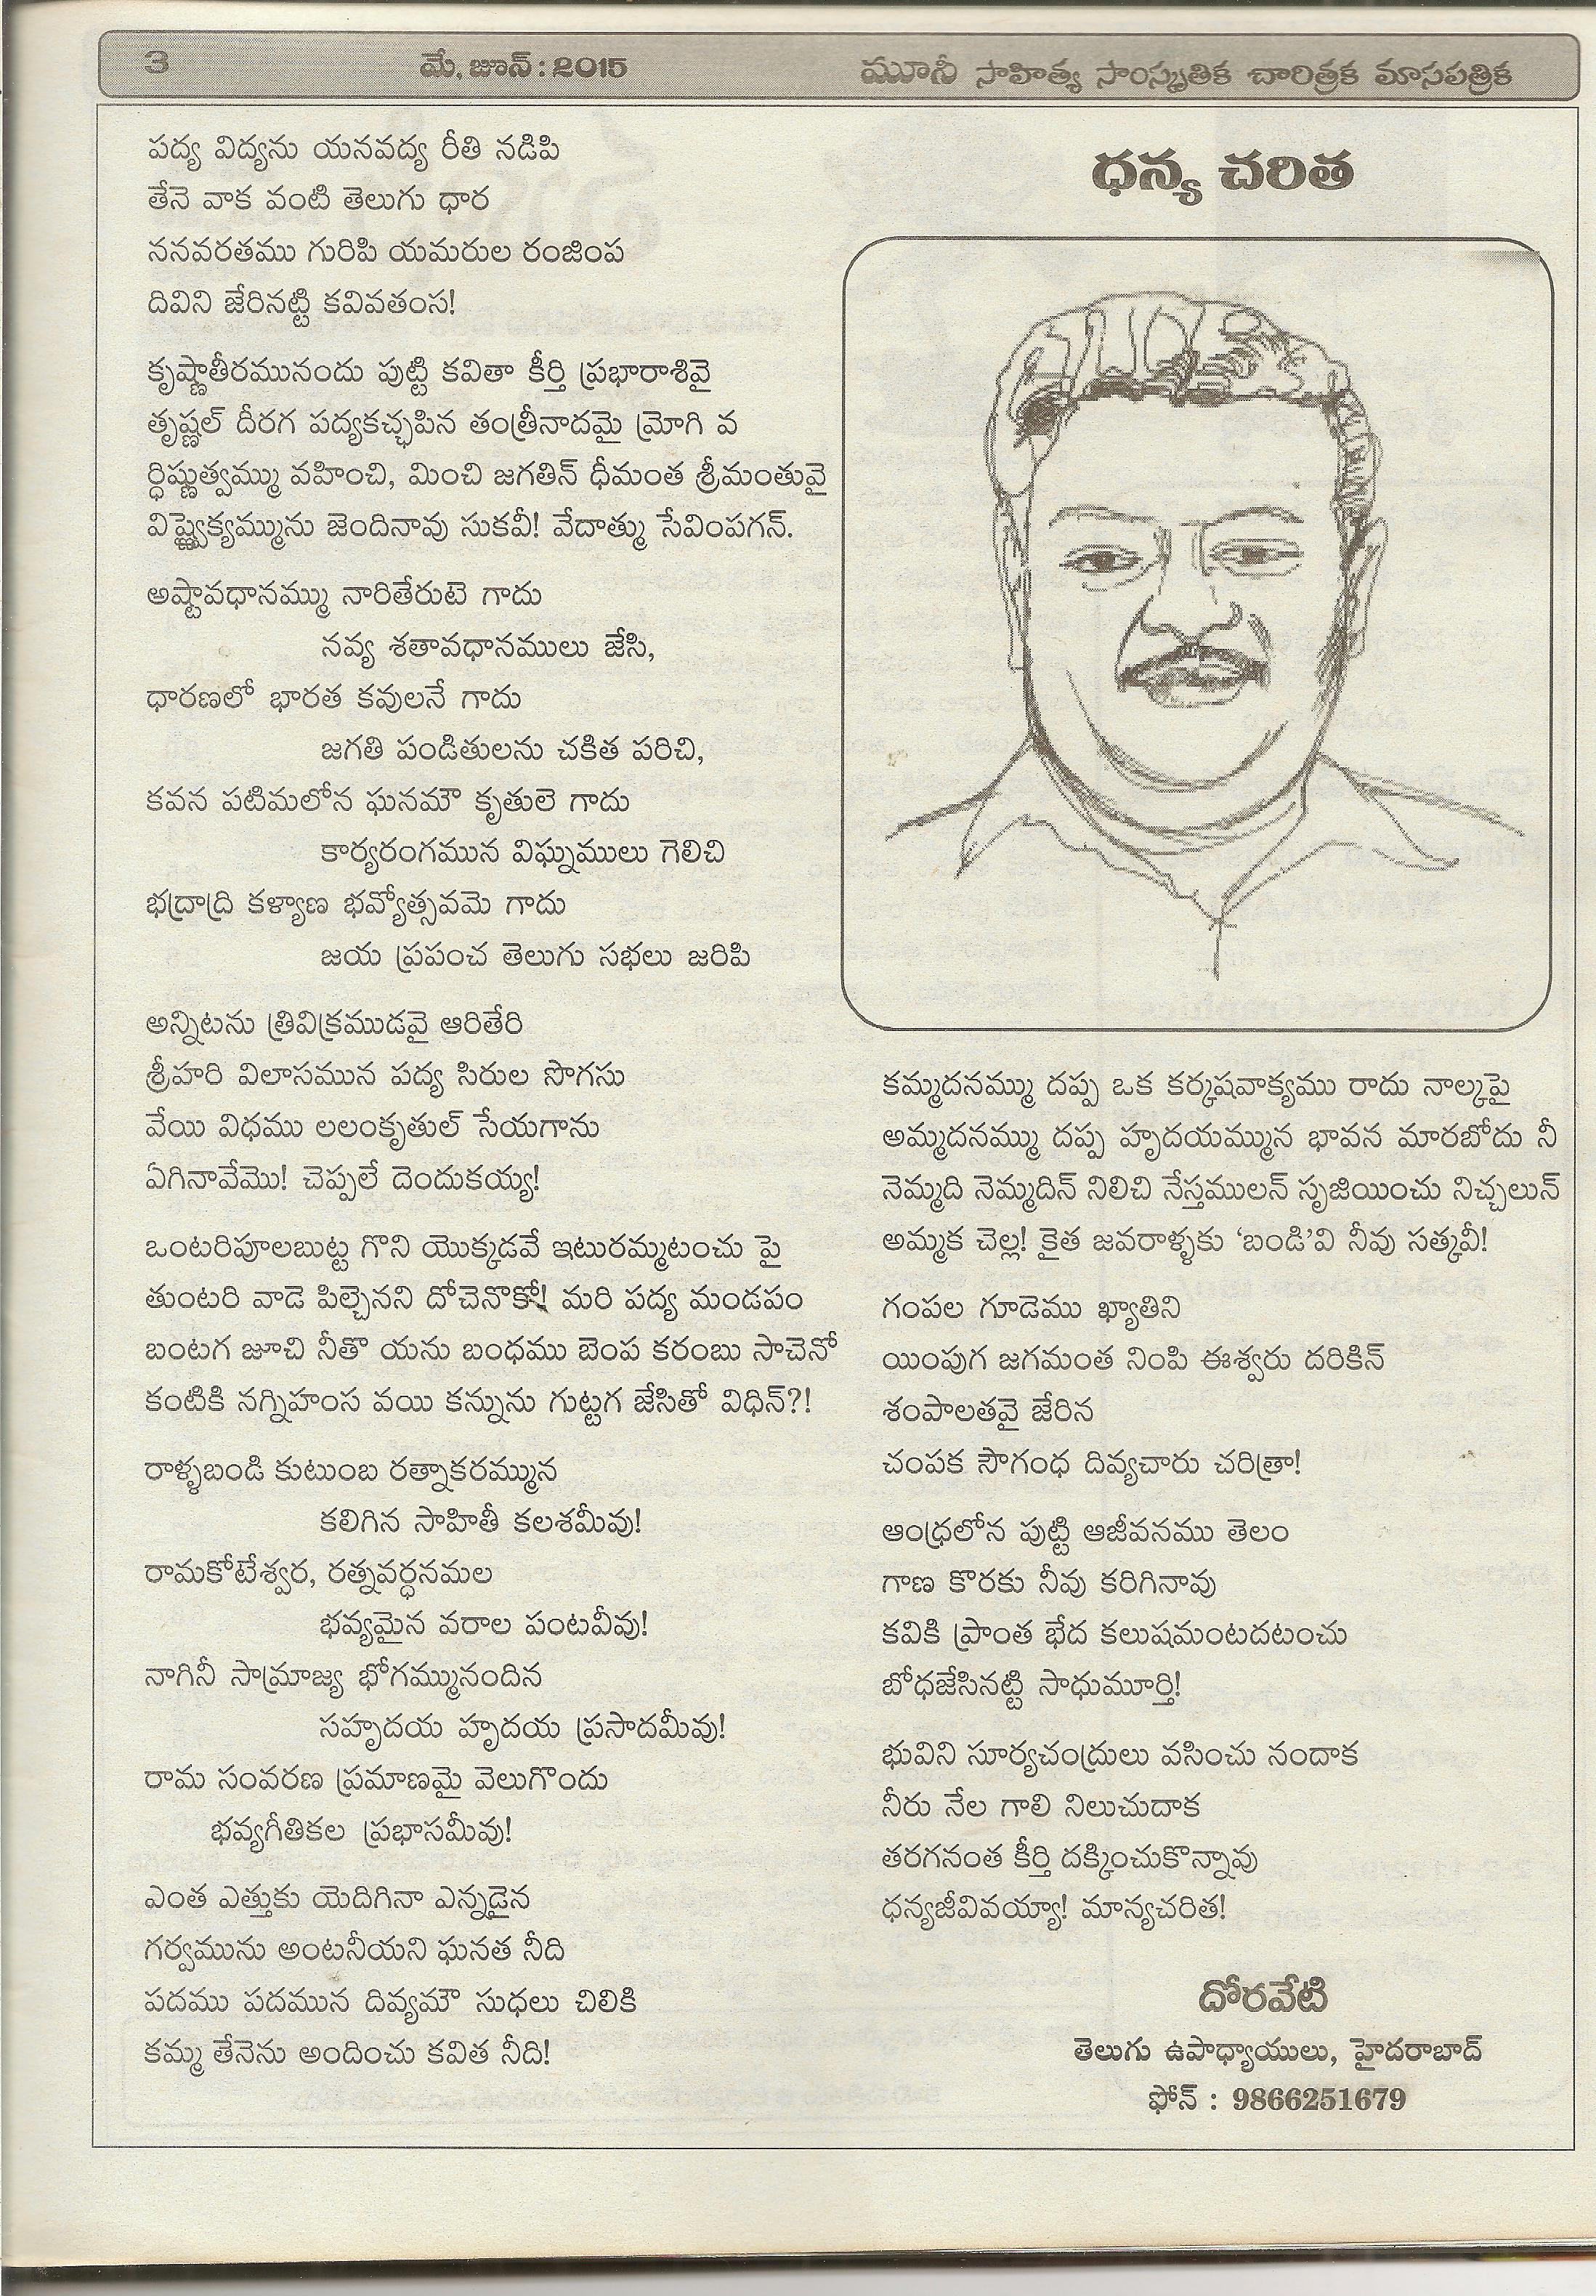 3 మే, జూన్ : 2015 మూసీ సాహిత్య సాంస్కృతిక చారిత్రక మాసపత్రిక
పద్య విద్యను యనవద్య రీతి నడిపి
తేనె వాక వంటి తెలుగు ధార
ననవరతము గురిపి యమరుల రంజింప
దివిని జేరినట్టి కవివతంస!
కృష్ణాతీరమునందు పుట్టి కవితా కీర్తి ప్రభారాశివై
తృష్ణల్ దీరగ పద్యకచ్ఛపిన తంత్రీనాదమై మ్రోగి వ
ర్ధిష్ణుత్వమ్ము వహించి, మించి జగతిన్ ధీమంత శ్రీమంతువై
విష్ణ్వైక్యమ్మును జెందినావు సుకవీ! వేదాత్ము సేవింపగన్.
అష్టావధానమ్ము నారితేరుటె గాదు
నవ్య శతావధానములు జేసి,
ధారణలో భారత కవులనే గాదు
జగతి పండితులను చకిత పరిచి,
కవన పటిమలోన ఘనమౌ కృతులె గాదు
కార్యరంగమున విఘ్నములు గెలిచి
భద్రాద్రి కళ్యాణ భవ్యోత్సవమె గాదు
జయ ప్రపంచ తెలుగు సభలు జరిపి
అన్నిటను త్రివిక్రముడవై ఆరితేరి
శ్రీహరి విలాసమున పద్య సిరుల సొగసు
వేయి విధము లలంకృతుల్ సేయగాను
ఏగినావేమొ! చెప్పలే దెందుకయ్య!
ఒంటరిపూలబుట్ట గొని యొక్కడవే ఇటురమ్మటంచు పై
తుంటరి వాడె పిల్చెనని దోచెనొకో! మరి పద్య మండపం
బంటగ జూచి నీతొ యను బంధము బెంప కరంబు సాచెనో
కంటికి నగ్నిహంస వయి కన్నును గుట్టగ జేసితో విధిన్?!
రాళ్ళబండి కుటుంబ రత్నాకరమ్మున
కలిగిన సాహితీ కలశమీవు!
రామకోటేశ్వర, రత్నవర్ధనమల
భవ్యమైన వరాల పంటవీవు!
నాగినీ సామ్రాజ్య భోగమ్మునందిన
సహృదయ హృదయ ప్రసాదమీవు!
రామ సంవరణ ప్రమాణమై వెలుగొందు
భవ్యగీతికల ప్రభాసమీవు!
ఎంత ఎత్తుకు యెదిగినా ఎన్నడైన
గర్వమును అంటనీయని ఘనత నీది
పదము పదమున దివ్యమౌ సుధలు చిలికి
కమ్మ తేనెను అందించు కవిత నీది!
ధన్య చరిత
కమ్మదనమ్ము దప్ప ఒక కర్కషవాక్యము రాదు నాల్కపై
అమ్మదనమ్ము దప్ప హృదయమ్మున భావన మారబోదు నీ
నెమ్మది నెమ్మదిన్ నిలిచి నేస్తములన్ సృజియించు నిచ్చలున్
అమ్మక చెల్ల! కైత జవరాళ్ళకు ‘బండి’వి నీవు సత్కవీ!
గంపల గూడెము ఖ్యాతిని
యింపుగ జగమంత నింపి ఈశ్వరు దరికిన్
శంపాలతవై జేరిన
చంపక సౌగంధ దివ్యచారు చరిత్రా!
ఆంధ్రలోన పుట్టి ఆజీవనము తెలం
గాణ కొరకు నీవు కరిగినావు
కవికి ప్రాంత భేద కలుషమంటదటంచు
బోధజేసినట్టి సాధుమూర్తి!
భువిని సూర్యచంద్రులు వసించు నందాక
నీరు నేల గాలి నిలుచుదాక
తరగనంత కీర్తి దక్కించుకొన్నావు
ధన్యజీవివయ్యా! మాన్యచరిత!
దోరవేటి
తెలుగు ఉపాధ్యాయులు, హైదరాబాద్
ఫోన్ : 9866251679